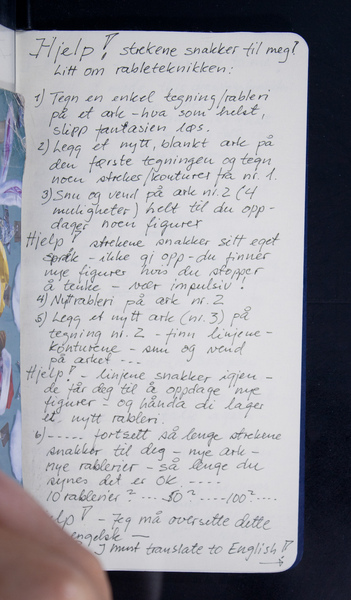 Hjelp! strekene snakker til meg!
Litt om rableteknikken:
1) Tegn en enkel tegning/rableri
på et ark - hva som helst,
slipp fantasien løs.
2) Legg et nytt, blankt ark på
den første tegningen og tegn
noen streker/konturer fra nr. 1.
3) Snu og vend på ark nr. 2 (4
muligheter) helt til du opp-
dager noen figurer
Hjelp! strekene snakker sitt eget
språk - ikke gi opp - du finner
nye figurer hvis du stopper
å tenke - vær impulsiv!
4) Nytt rableri på ark nr. 2
5) Legg et nytt ark (nr. 3) på
tegning nr. 2 - finn linjene-
konturene - snu og vend
på arket ---
Hjelp! - linjene snakker igjen -
de får deg til å oppdage nye
figurer - og hånda di lager
et nytt rableri.
6) ----- fortsett så lenge strekene
snakker til deg - nye ark -
nye rablerier - så lenge du
synes det er OK. ----
10 rablerier? --- 50? ---- 100? ----
elp! - Jeg må oversette dette
engelsk -
I must translate to English!
→